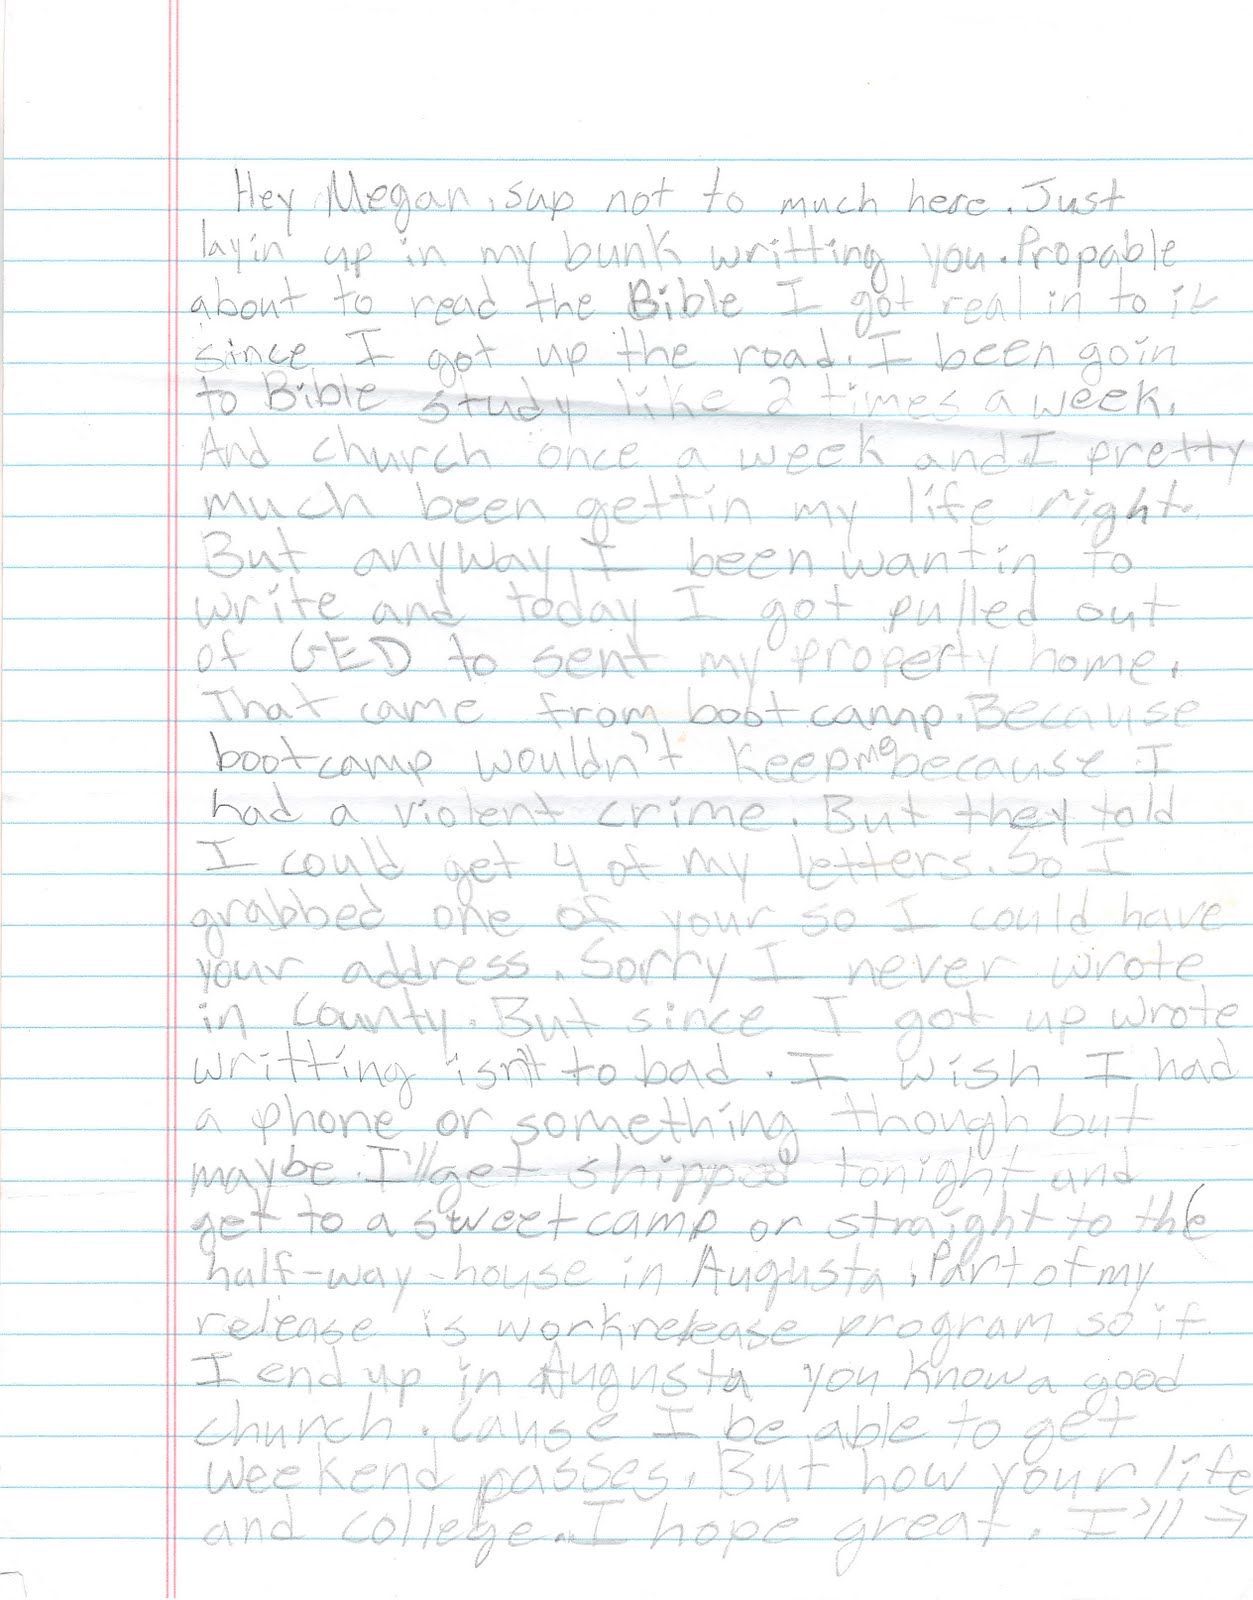 Hey Megan, sup not to much here. Just
layin up in my bunk writting you. Propable
about to read the Bible I got real in to it
since I got up the road. I been goin
to Bible study like 2 times a week.
And church once a week and I pretty
much been gettin my life right.
But anyway I been wantin to
write and today I got pulled out
of GED to sent my property home.
That came from boot camp. Because
bootcamp wouldn't keep me because I
had a violent crime. But they told
I could get 4 of my letters. So I
grabbed one of your so I could have
your address. Sorry I never wrote
in County. But since I got up wrote
writting isn't to bad. I wish I had
a phone or something though but
maybe I'll get shipped tonight and
get to a sweet camp or straight to the
half-way-house in Augusta. Part of my
release is workrelease program so if
I end up in Augusta you know a good
church. Cause I be able to get
weekend passes. But how your life
and college. I hope great. I'll →